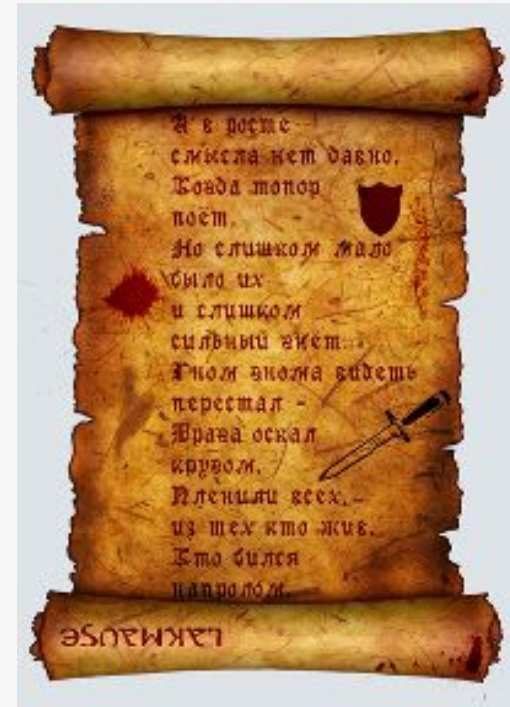 А в росте
смысла нет давно,
Когда топор
поёт.
Но слишком мало
было их
и слишком
сильный гнёт...
Гном гнома видеть
перестал -
Врага оскал
кругом.
Пленили всех, -
из тех кто жив.
Кто бился
напролом.
LAKMAUSE